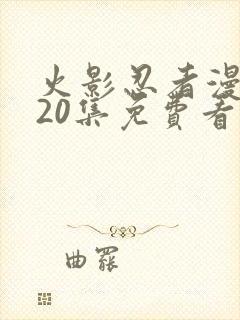 火影忍者漫
20集免費看
曲罷